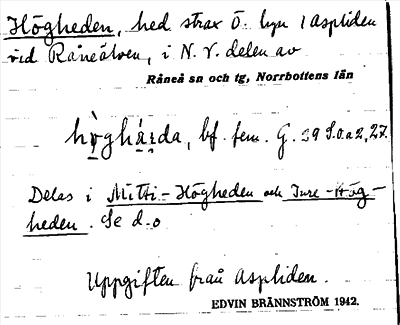 Högheden, hed strax Ö. byn i Aspliden
vid Råneälven, i N.V. delen av
Råneå sn och tg, Norrbottens län
hǫ̀ghạ́ṛda, bf. fem. G. 39 S.o.a2,27.
Delas i Mitti-Högheden och Jure-Hög-
heden. Se d.o
Uppgiften från Aspliden.
EDVIN BRÄNNSTRÖM 1942.